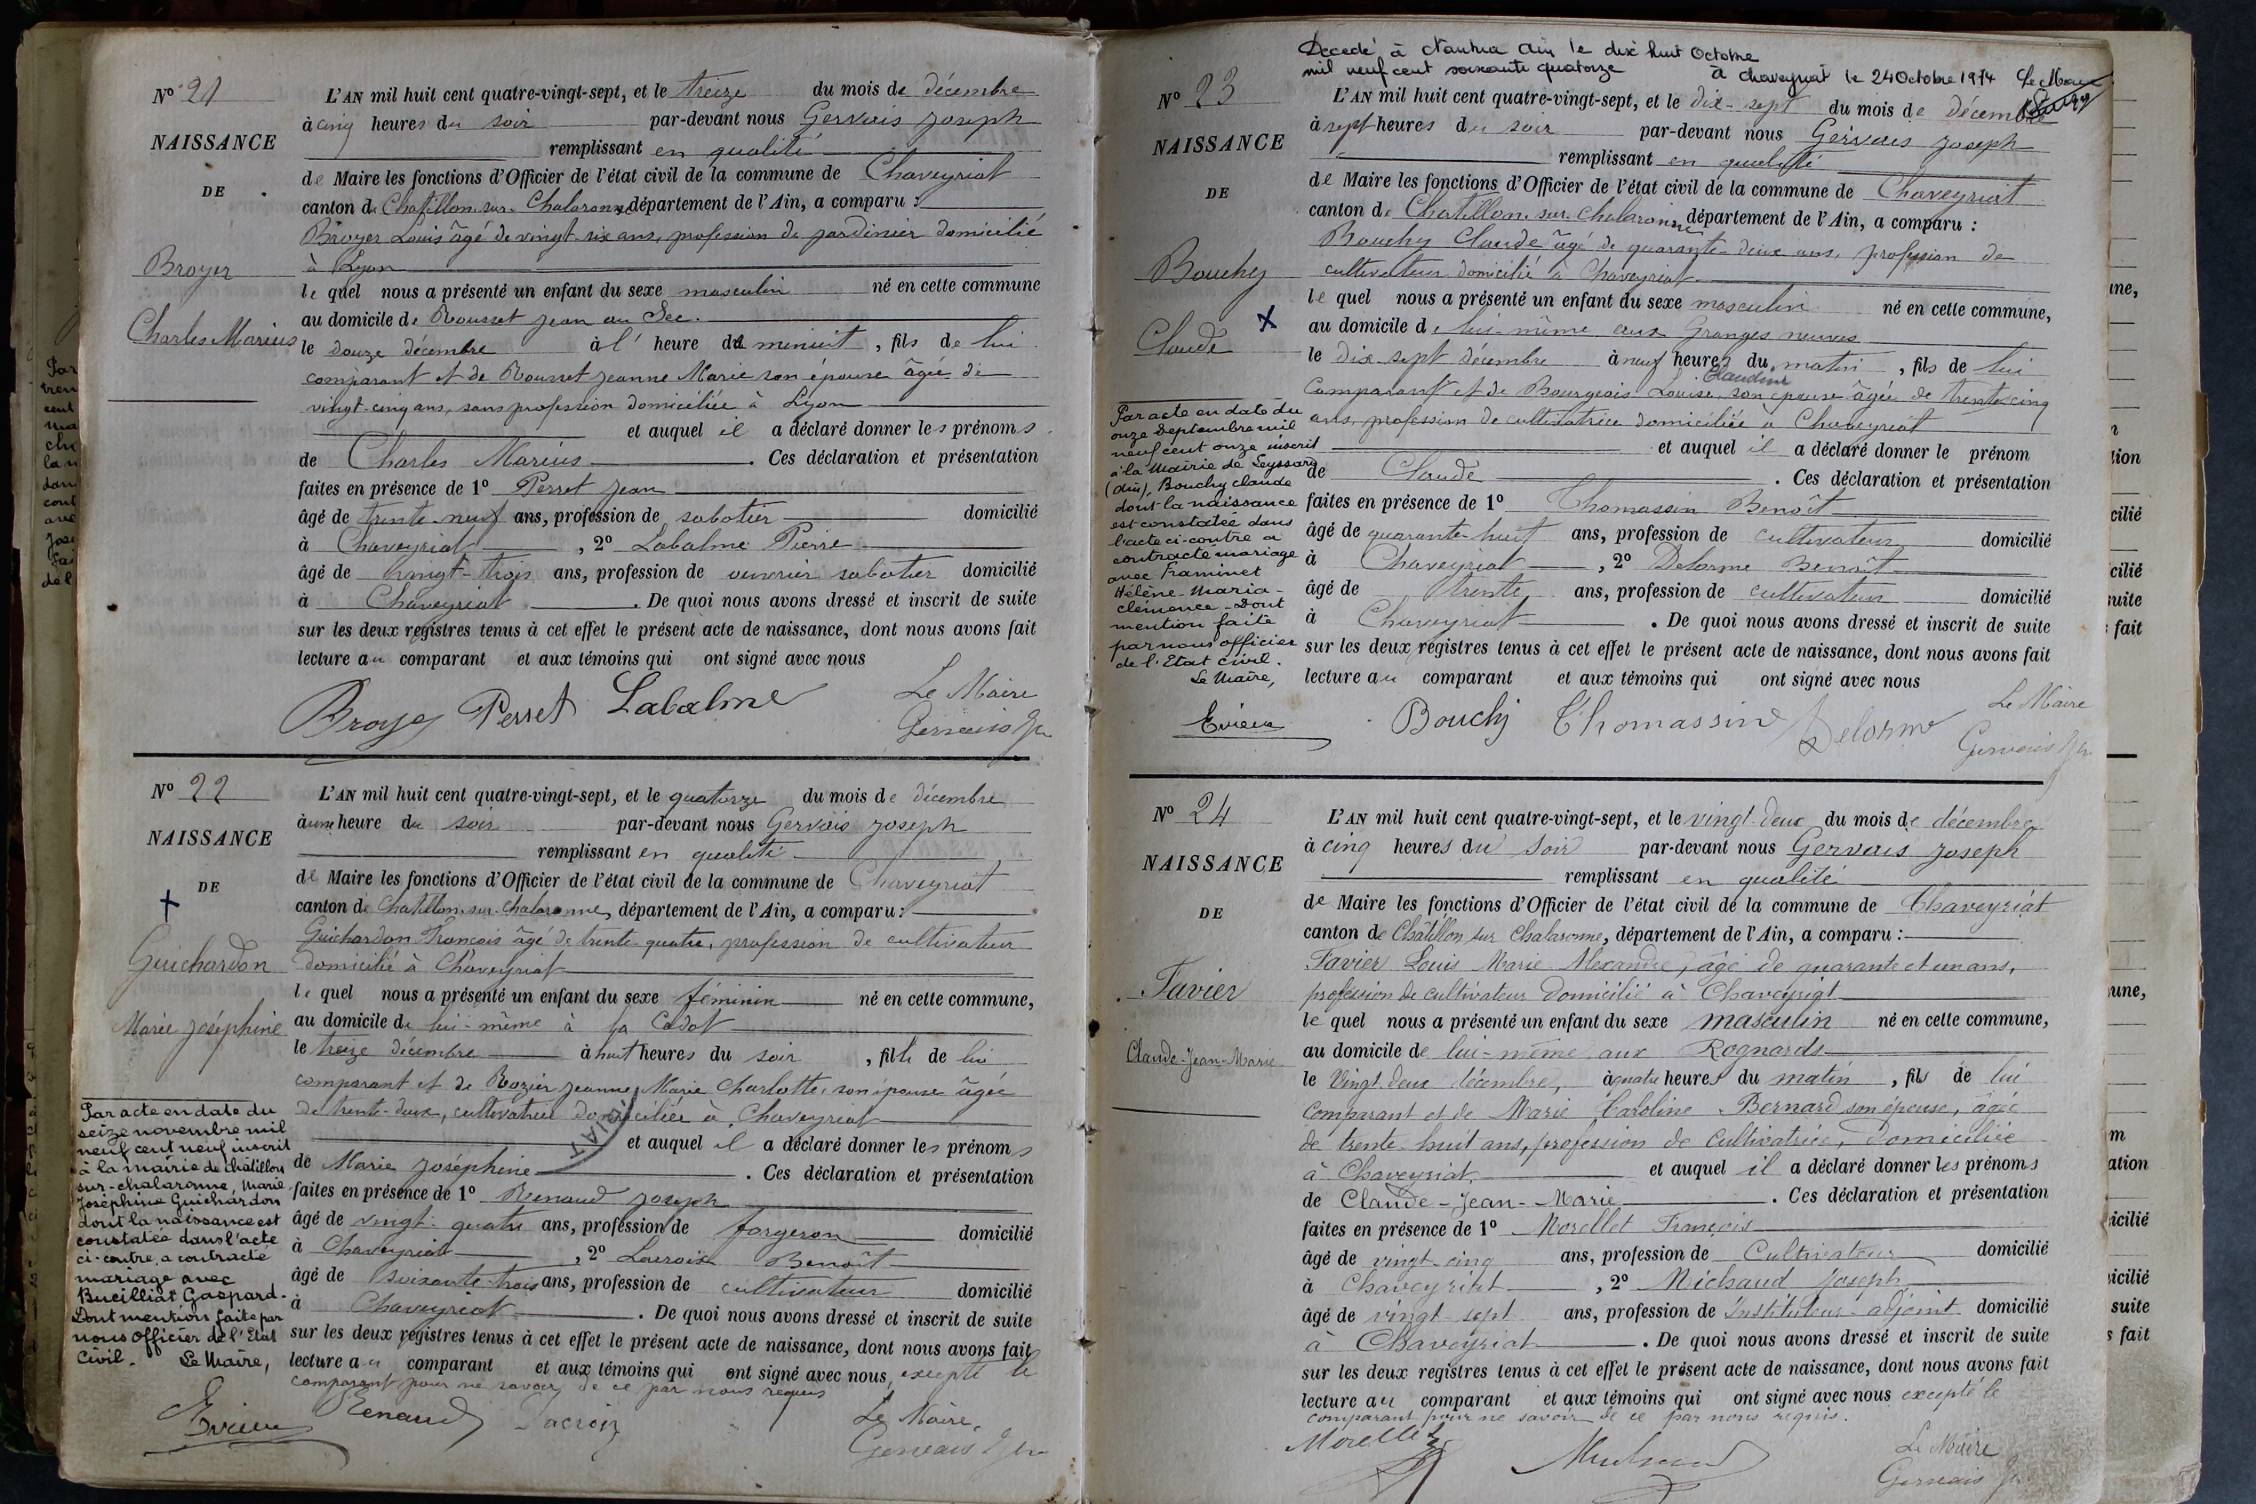 Nº 21
NAISSANCE
DE
Broyer
Charles Marius
L'AN mil huit cent quatre-vingt-sept, et le treize du mois de décembre
à cinq heures du soir par-devant nous Gervais Joseph
remplissant en qualité
de Maire les fonctions d'Officier de l'état civil de la commune de Chaveyriat
canton de Chatillon-sur-Chalaronne, département de l'Ain, a comparu :
Broyer Louis âgé de vingt-six ans, profession de jardinier domicilié
à Lyon
le quel nous a présenté un enfant du sexe masculin né en cette commune
au domicile de Rousset Jean au Sec.
le douze décembre à l' heure de minuit, fils de lui
comparant et de Rousset Jeanne Marie son épouse âgée de
vingt-cinq ans, sans profession domiciliée à Lyon
et auquel il a déclaré donner les prénoms
de Charles Marius. Ces déclaration et présentation
faites en présence de 1º Perret Jean
âgé de trente-neuf ans, profession de sabotier domicilié
à Chaveyriat, 2º Labalme Pierre
âgé de vingt-trois ans, profession de ouvrier sabotier domicilié
à Chaveyriat. De quoi nous avons dressé et inscrit de suite
sur les deux registres tenus à cet effet le présent acte de naissance, dont nous avons fait
lecture au comparant et aux témoins qui ont signé avec nous
Broyer Perret Labalme
Le Maire
Gervais Jh
Nº 22
NAISSANCE
DE
Guichardon
Marie Joséphine
L'AN mil huit cent quatre-vingt-sept, et le quatorze du mois de décembre
à une heure du soir par-devant nous Gervais Joseph
remplissant en qualité
de Maire les fonctions d'Officier de l'état civil de la commune de Chaveyriat
canton de Chatillon-sur-Chalaronne, département de l'Ain, a comparu :
Guichardon François âgé de trente-quatre, profession de cultivateur
domicilié à Chaveyriat
le quel nous a présenté un enfant du sexe féminin né en cette commune,
au domicile de lui-même à la Cadot
le treize décembre à huit heures du soir, fille de lui
comparant et de Rozier Jeanne Marie Charlotte, son épouse âgée
de trente-deux, cultivatrice domiciliée à Chaveyriat
et auquel il a déclaré donner les prénoms
de Marie Joséphine. Ces déclaration et présentation
faites en présence de 1º Renaud Joseph
âgé de vingt-quatre ans, profession de forgeron domicilié
à Chaveyriat, 2º Lacroix Benoît
âgé de soixante-trois ans, profession de cultivateur domicilié
à Chaveyriat. De quoi nous avons dressé et inscrit de suite
sur les deux registres tenus à cet effet le présent acte de naissance, dont nous avons fait
lecture au comparant et aux témoins qui ont signé avec nous, excepté le
comparant pour ne savoir de ce par nous requis
Renaud Lacroix
Le Maire,
Gervais Jh
Par acte en date du
seize novembre mil
neuf cent neuf inscrit
à la mairie de châtillon
sur-chalaronne, Marie
Joséphine Guichardon
dont la naissance est
constatée dans l'acte
ci-contre, a contracté
mariage avec
Bucilliat Gaspard.
Dont mention faite par
nous officier de l'Etat
civil. Le Maire,
Evieux
Décédé à Nantua Ain le dix huit Octobre
mil neuf cent soixante quatorze
à chaveyriat le 24 Octobre 1974 Le Maire
Nº 23
NAISSANCE
DE
Bouchy
Claude
L'AN mil huit cent quatre-vingt-sept, et le dix-sept du mois de décembre
à sept heures du soir par-devant nous Gervais Joseph
remplissant en qualité
de Maire les fonctions d'Officier de l'état civil de la commune de Chaveyriat
canton de Chatillon sur Chalaronne, département de l'Ain, a comparu :
Bouchy Claude âgé de quarante-deux ans, profession de
cultivateur domicilié à Chaveyriat
le quel nous a présenté un enfant du sexe masculin né en cette commune,
au domicile de lui-même aux Granges neuves
le dix-sept décembre à neuf heures du matin, fils de lui
Claudine
comparant et de Bourgeois Louise son épouse âgée de trente-cinq
ans, profession de cultivatrice domiciliée à Chaveyriat
et auquel il a déclaré donner le prénom
de Claude. Ces déclaration et présentation
faites en présence de 1º Thomassin Benoît
âgé de quarante-huit ans, profession de cultivateur domicilié
à Chaveyriat, 2º Delorme Benoît
âgé de trente ans, profession de cultivateur domicilié
à Chaveyriat. De quoi nous avons dressé et inscrit de suite
sur les deux registres tenus à cet effet le présent acte de naissance, dont nous avons fait
lecture au comparant et aux témoins qui ont signé avec nous
Bouchy Thomassin Delorme
Le Maire
Gervais Jh
Par acte en date du
onze Septembre mil
neuf cent onze inscrit
à la Mairie de Leyssard
(Ain), Bouchy claude
dont la naissance
est constatée dans
l'acte ci-contre a
contracté mariage
avec Framinet
Hélène-Maria-
clémence. Dont
mention faite
par nous officier
de l'Etat civil.
Le Maire,
Evieux
Nº 24
NAISSANCE
DE
Favier
Claude-Jean-Marie
L'AN mil huit cent quatre-vingt-sept, et le vingt-deux du mois de décembre
à cinq heures du soir par-devant nous Gervais Joseph
remplissant en qualité
de Maire les fonctions d'Officier de l'état civil de la commune de Chaveyriat
canton de Châtillon sur Chalaronne, département de l'Ain, a comparu :
Favier Louis Marie Alexandre, âgé de quarante et un ans,
profession de cultivateur domicilié à Chaveyriat
le quel nous a présenté un enfant du sexe masculin né en cette commune,
au domicile de lui-même aux Rognards
le vingt-deux décembre, à quatre heures du matin, fils de lui
comparant et de Marie Caroline Bernard son épouse, âgée
de trente-huit ans, profession de cultivatrice, domiciliée
à Chaveyriat et auquel il a déclaré donner les prénoms
de Claude-Jean-Marie. Ces déclaration et présentation
faites en présence de 1º Morellet François
âgé de vingt-cinq ans, profession de Cultivateur domicilié
à Chaveyriat, 2º Michaud Joseph
âgé de vingt-sept ans, profession de Instituteur-adjoint domicilié
à Chaveyriat. De quoi nous avons dressé et inscrit de suite
sur les deux registres tenus à cet effet le présent acte de naissance, dont nous avons fait
lecture au comparant et aux témoins qui ont signé avec nous excepté le
comparant pour ne savoir de ce par nous requis.
Morellet Michaud
Le Maire
Gervais Jh